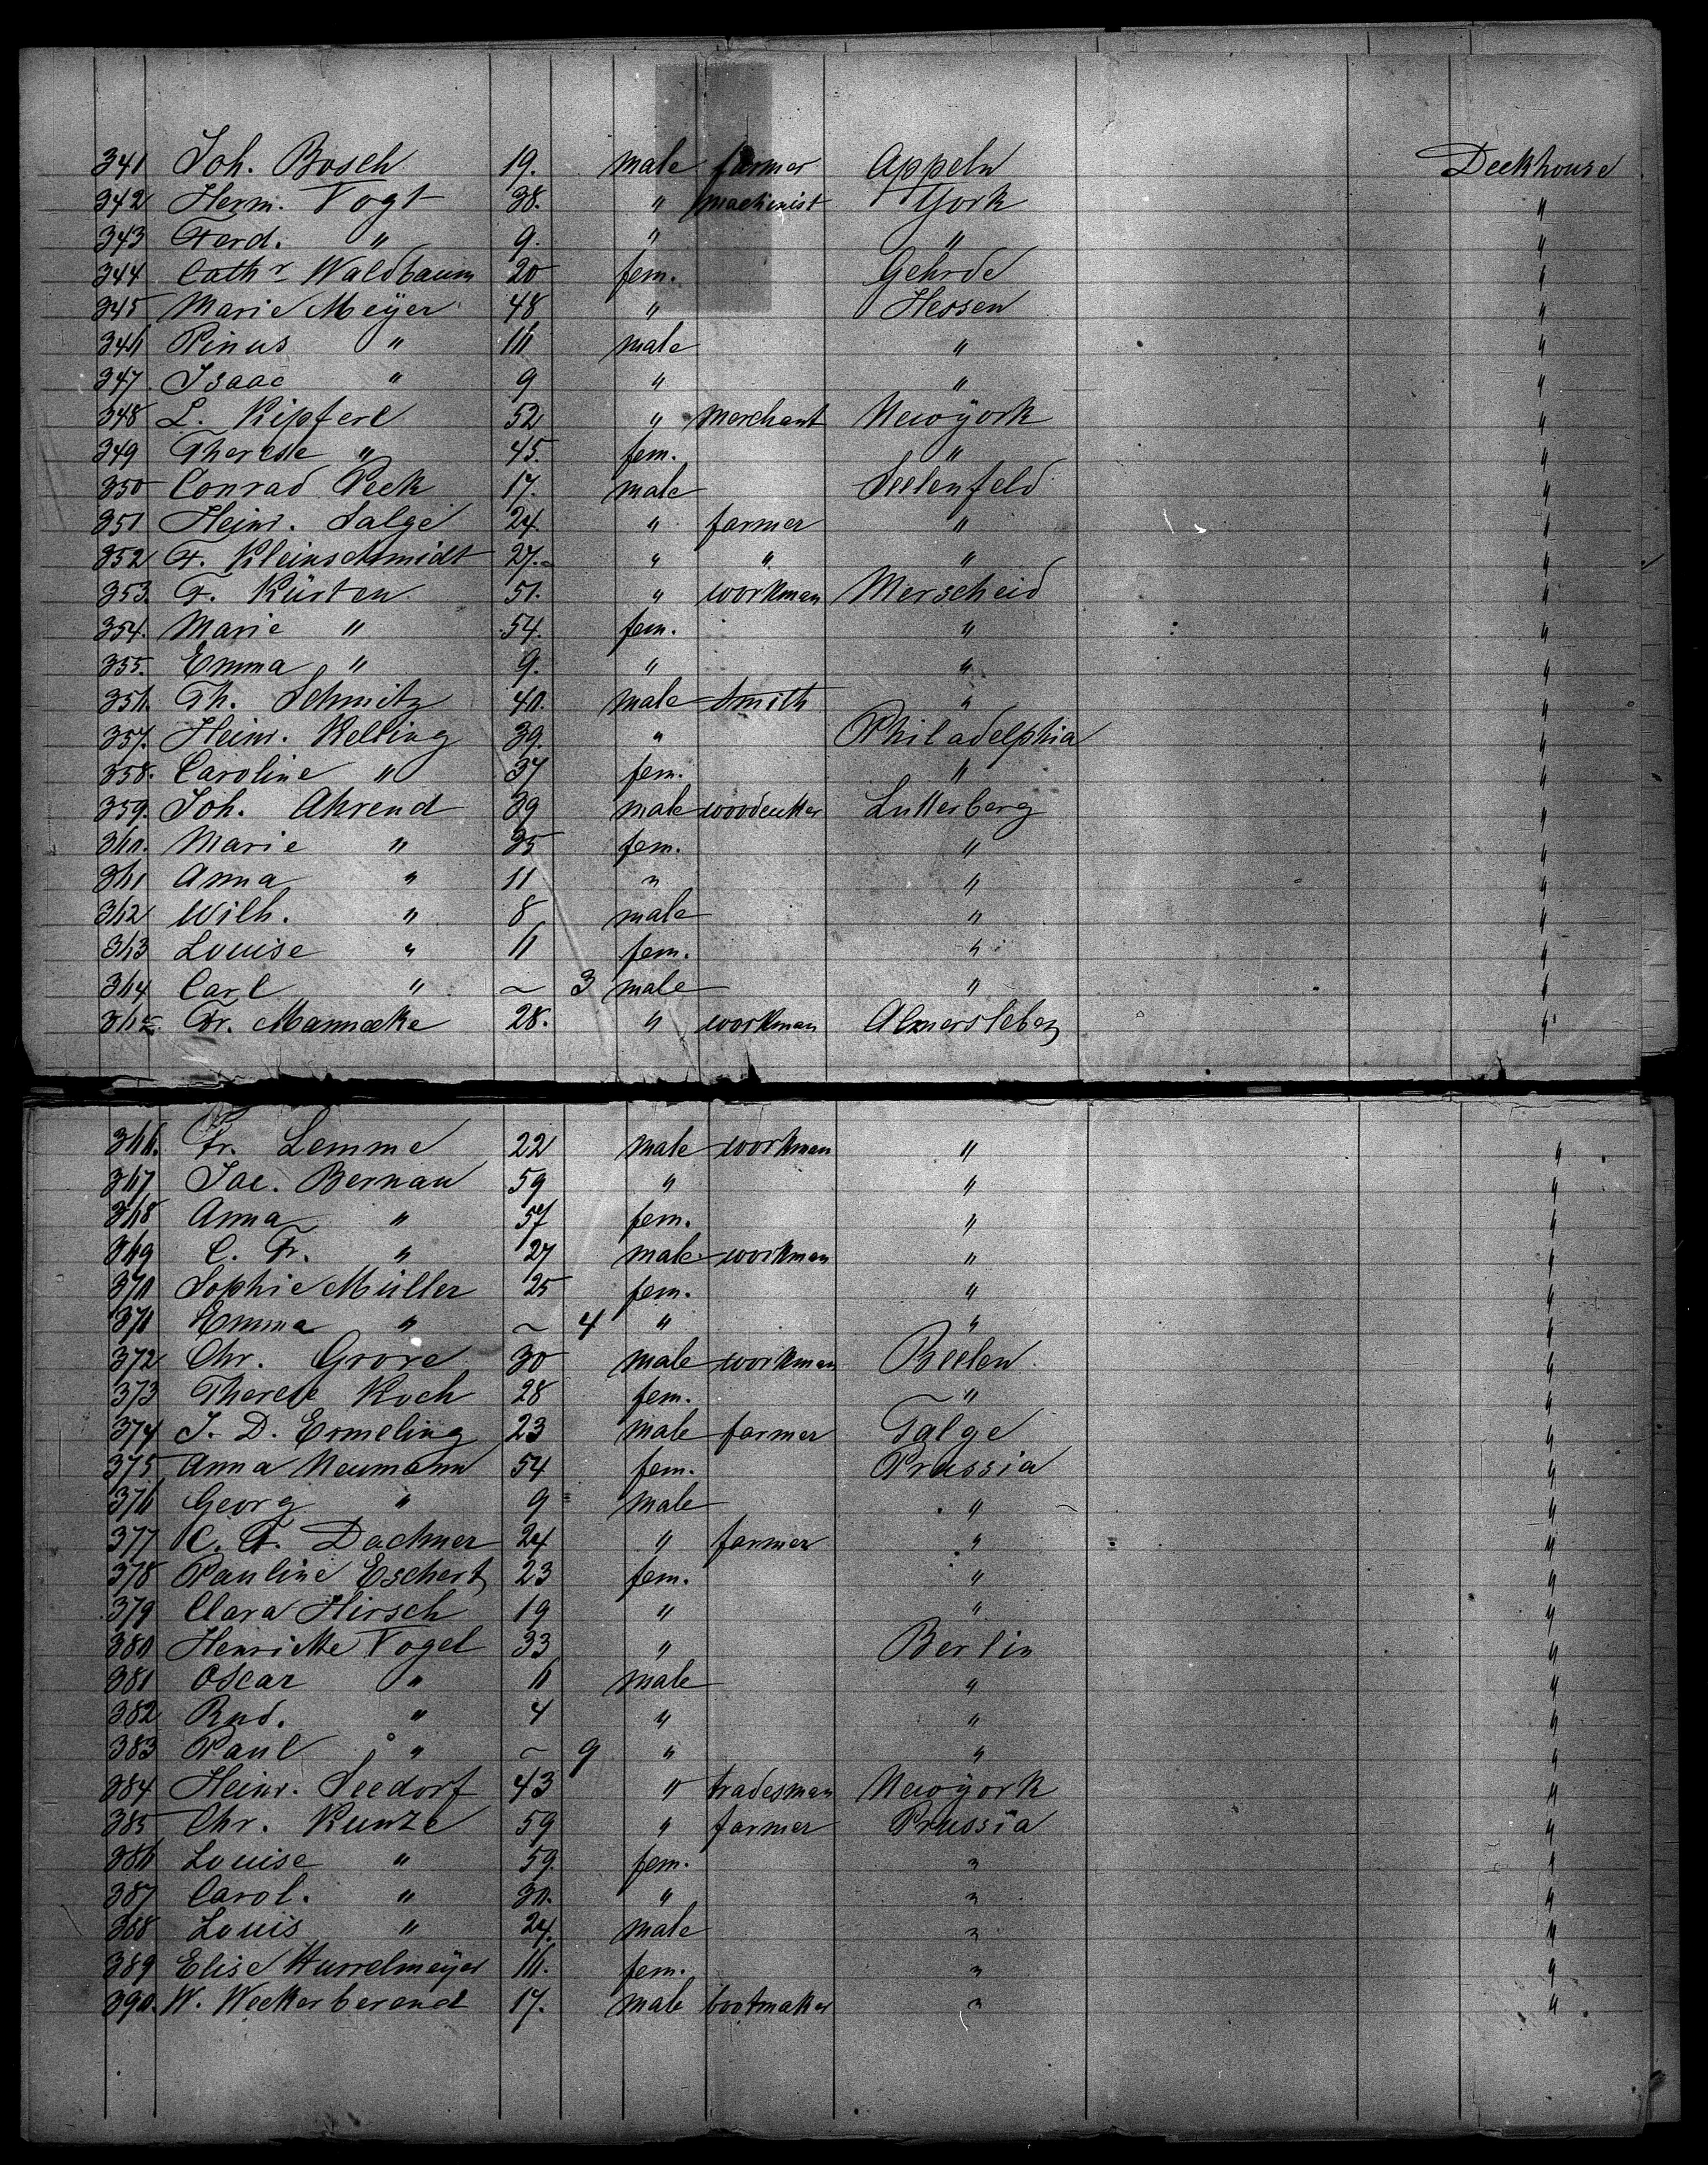 341 Joh. Bosch 19. male farmer Appeln Deckhouse
342 Herm. Vogt 38. " machinist York "
343 Ferd. " 9. " " "
344 Cathr Waldbaum 20 fem. Gehrde "
345 Marie Meÿer 48 " Hessen "
346 Pinus " 16 male " "
347. Isaac " 9 " " "
348 L. Kipferl 52 " merchant Newÿork "
349 Therese " 45. fem. " "
350 Conrad Peek 17. male Seelenfeld "
351 Heinr. Salge 24. " farmer " "
352 F. Kleinschmidt 27. " " " "
353. F. Kürten 51. " workman Merscheid "
354. Marie " 54. fem. " "
355. Emma " 9. " " "
356. Th. Schmitz 40. male smith " "
357. Heinr. Kelling 39. " Philadelphia "
358. Caroline " 37 fem. " "
359. Joh. Ahrend 39 male woodcutter Lutterberg "
360. Marie " 35 fem. " "
361 Anna " 11 " " "
362 Wilh. " 8 male " "
363 Louise " 6 fem. " "
364 Carl " ~ 3 male " "
365. Fr. Mannecke 28. " workman "
366. Fr. Lemme 22 male workman " "
367 Jac. Bernau 59 " " "
368 Anna " 57 fem. " "
369 C. Fr. " 27 male workman " "
370 Sophie Müller 25 fem. " "
371 Emma " ~ 4 " " "
372 Chr. Grove 30 male workman Beelen "
373 Therese Koch 28 fem. " "
374 J. D. Ermeling 23 male farmer Talge "
375 Anna Neumann 54 fem. Prussia "
376 Georg " 9 male " "
377 C. F. Dachner 24 " farmer " "
378 Pauline Eschert 23 fem. " "
379 Clara Hirsch 19 " " "
380 Henriette Vogel 33 " Berlin "
381 Oscar " 6 male " "
382 Rud. " 4 " " "
383 Paul " ~ 9 " " "
384 Heinr. Seedorf 43 " tradesman Newÿork "
385 Chr. Kunze 59 " farmer Prussia "
386 Louise " 59. fem. " "
387 Carol. " 30. " " "
388 Louis " 24. male " "
389 Elise Hurrelmeÿer 16. fem. " "
390. W. Weckerberend 17. male bootmaker " "